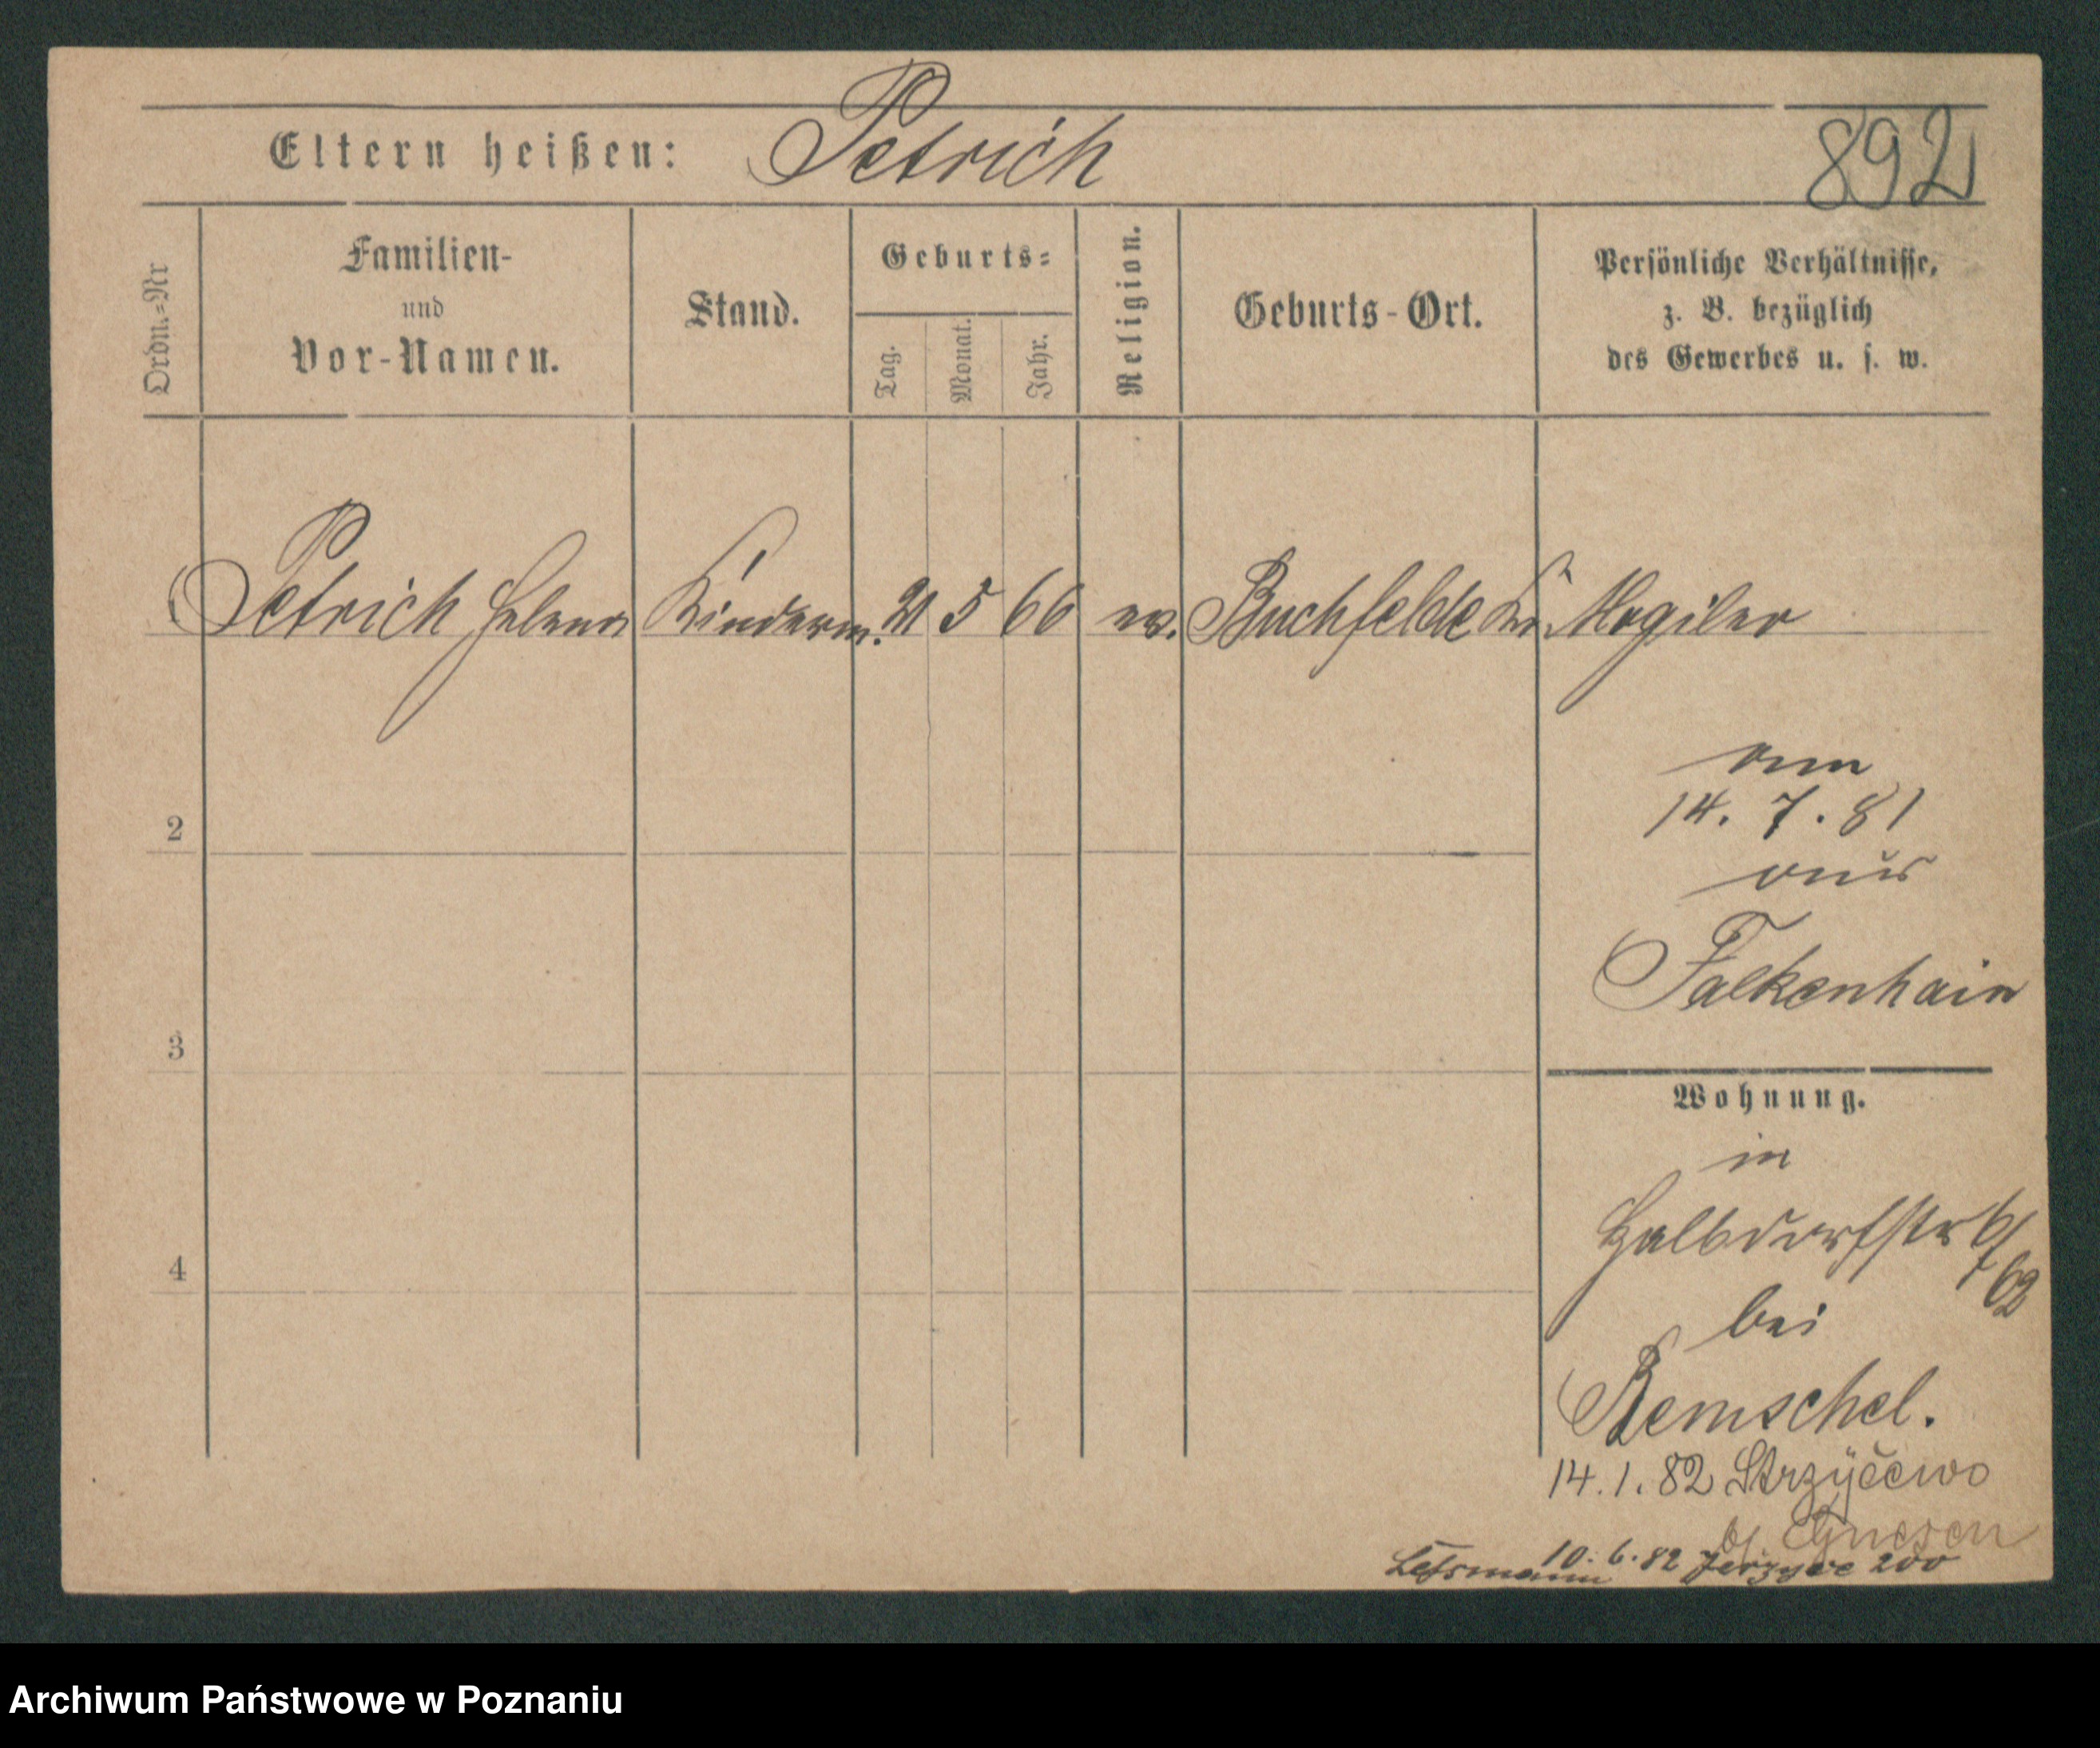 Eltern heißen: Petrich
892
Ordn.-Nr
Familien-
und
Vor-Namen.
Stand.
Geburts-
Tag.
Monat.
Jahr.
Religion.
Geburts-Ort.
Persönliche Verhältnisse,
z. B. bezüglich
des Gewerbes u. s. w.
Petrich Helena Kinderm. 21 5 66 ev. Buchfelde Kr. Mogilno
am
14. 7. 81
aus
Falkenhain
2
3
4
Wohnung.
in
Halbdorfstr 6/
62
bei
Remschel.
14. 1. 82 Strzyżewo
b/ Gnesen
10. 6. 82 Jerzyce 200
Archiwum Państwowe w Poznaniu